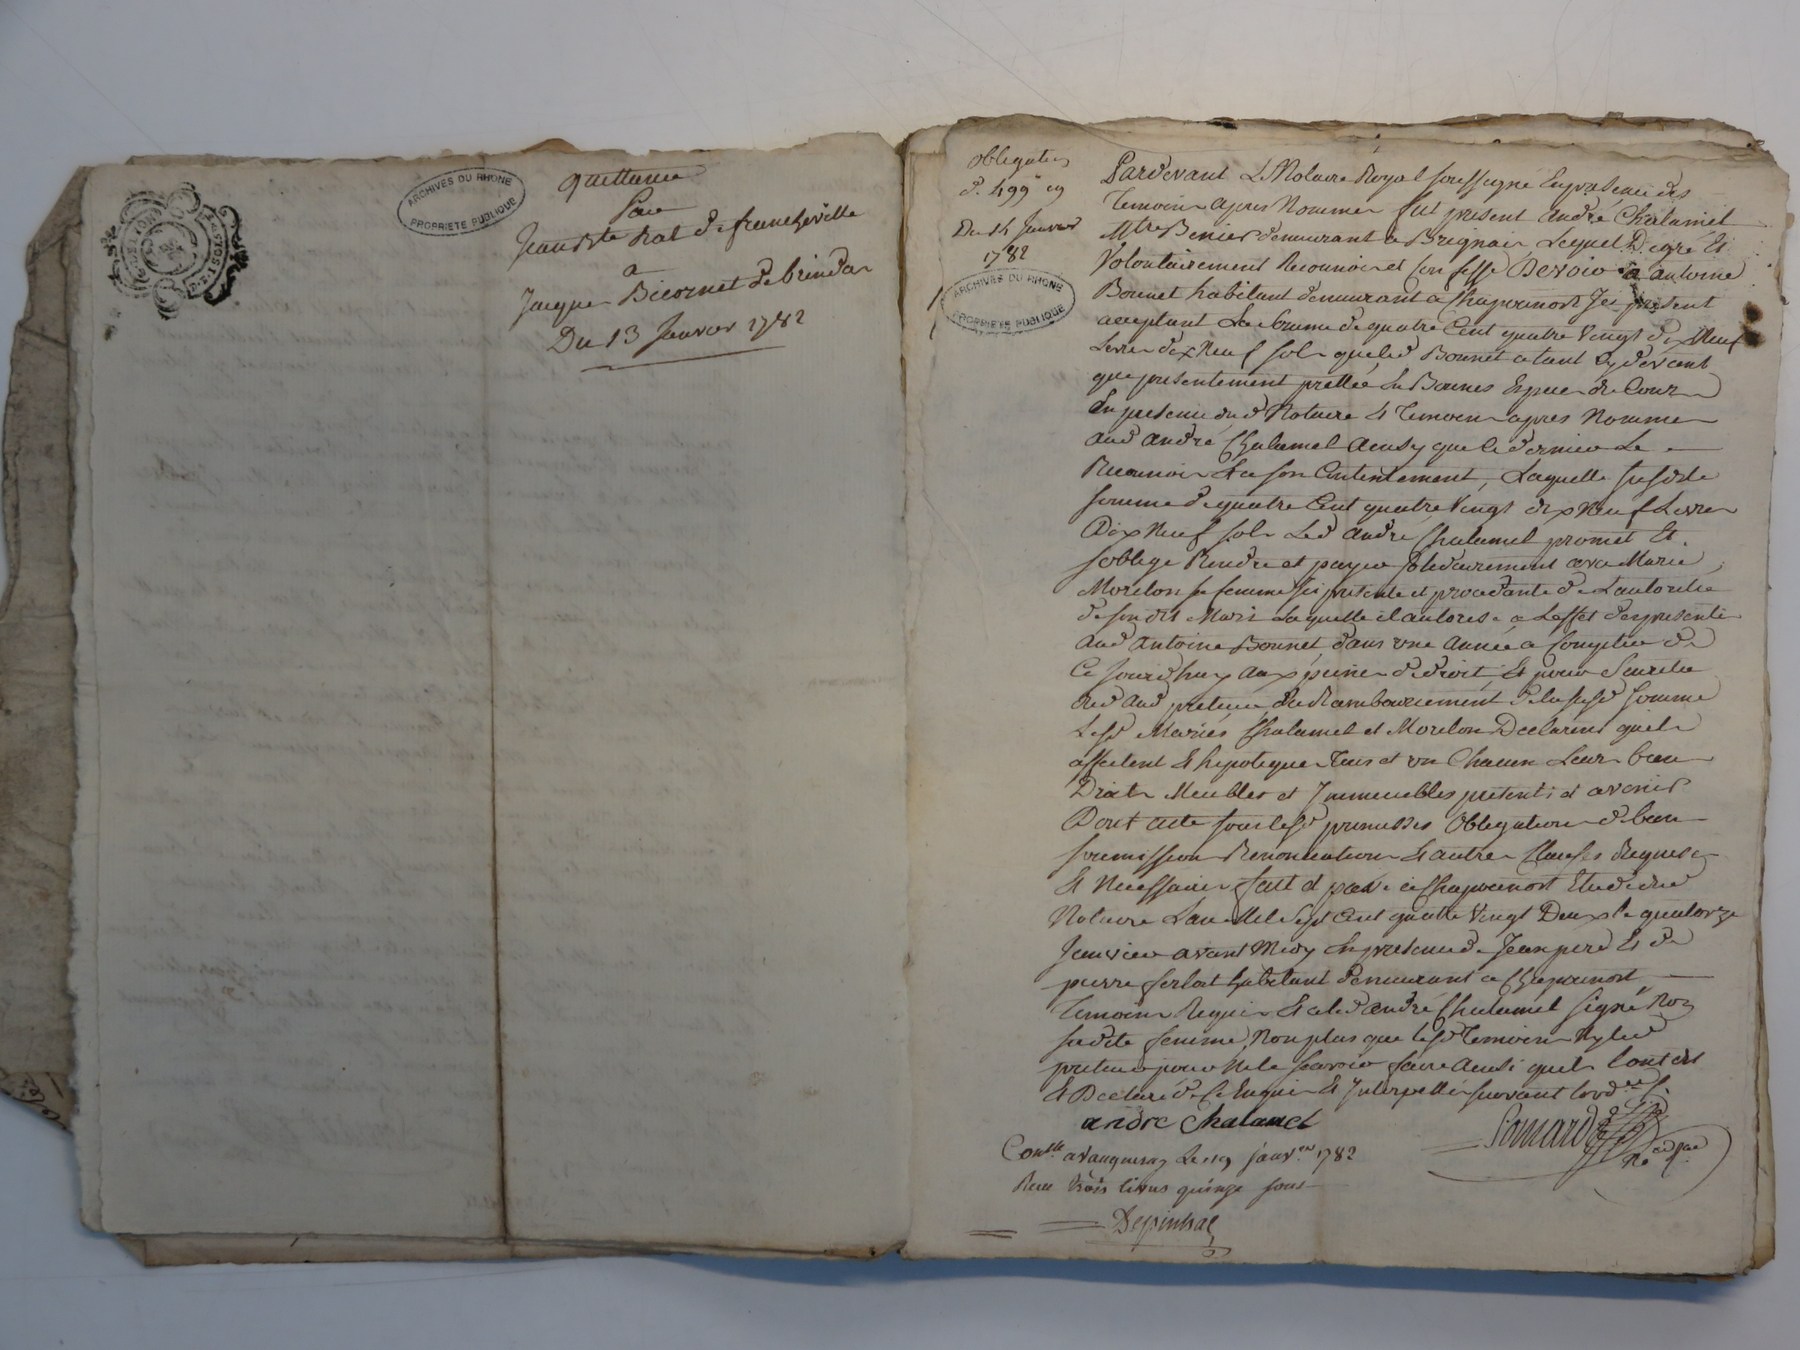 quittance
Par
Jean Bte Rat de francheville
a
Jacque Bicornet de brindas
Du 13 Janvier 1782
ARCHIVES DU RHONE
PROPRIETE PUBLIQUE
obligation
d. 499
Du 14 Janvier
1782
ARCHIVES DU RHONE
PROPRIETE PUBLIQUE
Pardevant Le Notaire Royal soussigné En presence des
Temoins apres Nommes fut present andré Chalamel
Mtre demeurant a Brignais Lequel De gré Et
Volontairement Reconnoit et Confesse Devoir a antoine
Bonnet habitant demeurant a Chaponost Jci present
acceptant La somme de quatre Cent quatre Vingt dix Neuf
Livres dix Neuf sols que led Bonnet a tant Cy devant
que presentement prettée En Bonnes Espece de Cour
En presence dud Notaire Et Temoins apres Nommes
aud andré Chalamel Ainsy que le dernier Le
Reconnoit Et a son Contentement, Laquelle susdite
somme de quatre Cent quatre Vingt dix Neuf Livres
Dix Neuf sols Led andré Chalamel promet Et
soblige Rendre et payer solidairement avec Marie
Morelon sa femme Jci presente et procedante de Lautorité
de son dit Mari Laquelle il autorise a Leffet des presentes
aud Antoine Bonnet dans une Année a Compter de
Ce Jourdhuy aux peines de droit, Et pour Seureté
du Rembourcement De la susd somme
Lesd Mariés Chalamel et Morelon Declarent quils
affectent Et hipoteque Tous et un Chacun Leurs biens
Droits Meubles et Jmmeubles presents et avenir
Dont acte sous lesd promesses Obligations de biens
soumission Renonciation Et autres Clauses Requises
Et Necessaires fait et passé a Chaponost Etude dud
Notaire Lan Mil Sept Cent quatre Vingt Deux le quatorze
Janvier avant Midy En presence de Jean pere Et de
pierre ferlat habitant demeurant a Chaponost
Temoins Requis Et a led andré Chalamel signé Non
sadite femme, Non plus que lesd Temoins Ny led
pour Ne le scavoir faire Ainsi quils Lont dit
Et Declaré de Ce Enquis Et Interpellés suivant Lord.ce /.
andre Chalamel
Conllé a Vaugneray Le 19 janv.er 1782
Reçu trois livres quinze sous
Depinhac